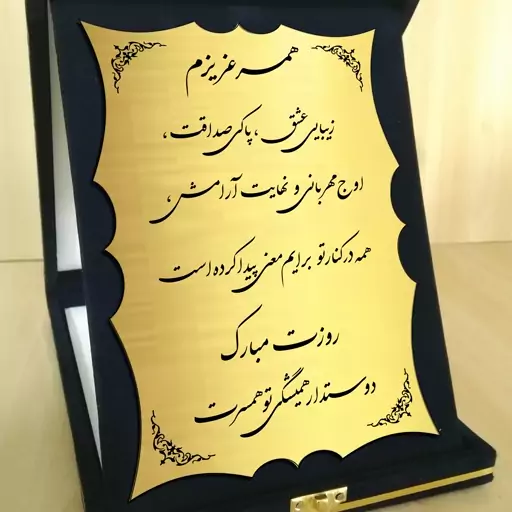 همسر عزیزم
زیبایی عشق ، پاکی صداقت ،
اوج مهربانی و نهایت آرامش ،
همه در کنار تو برایم معنی پیدا کرده است
روزت مبارک
دوستدار همیشگی تو همسرت